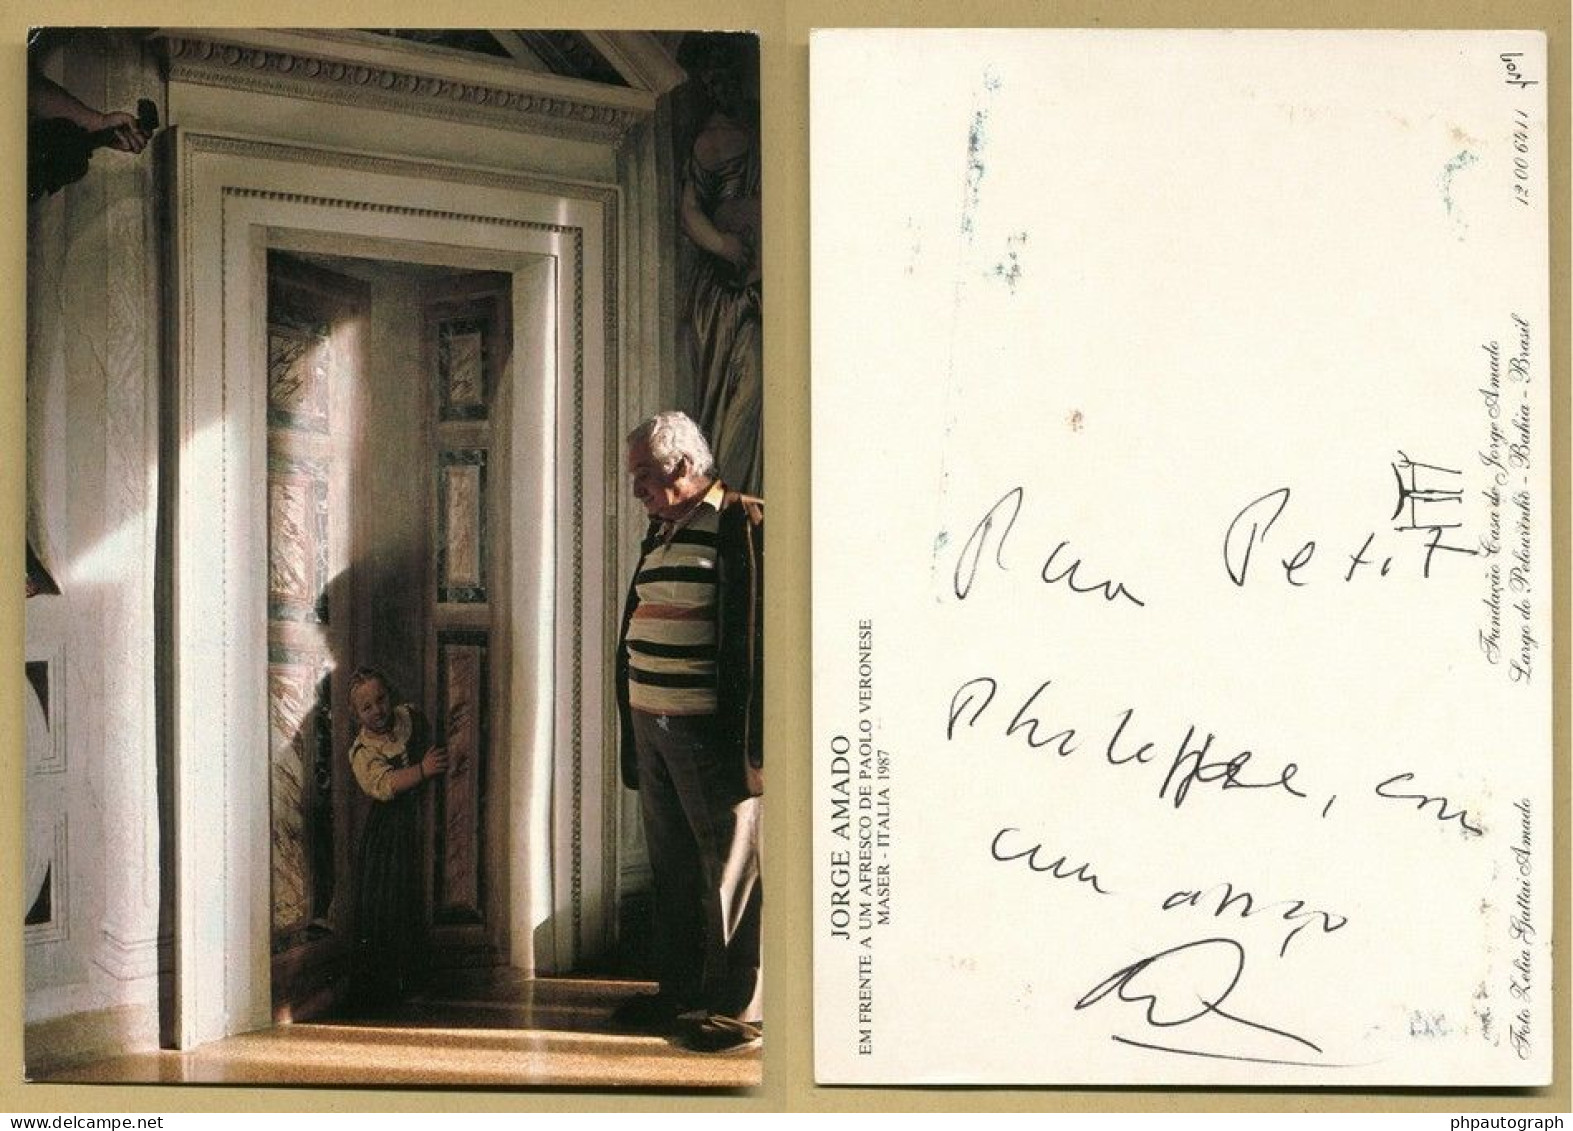 JORGE AMADO
EM FRENTE A UM AFRESCO DE PAOLO VERONESE
MASER - ITALIA 1987
Para Petit
Philippe, com
um abraço
Fundação Casa de Jorge Amado
Largo do Pelourinho - Bahia - Brasil
Foto Zelia Gattai Amado
12 00 6411
phpautograph